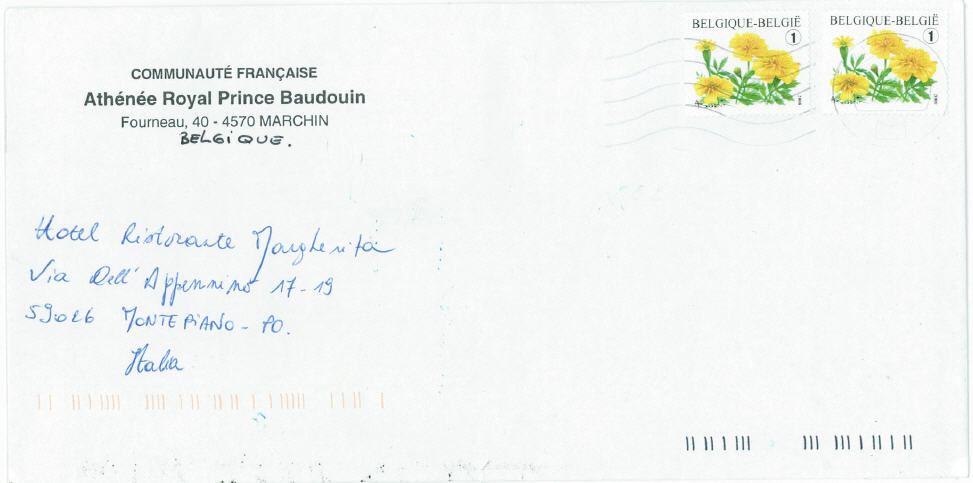 COMMUNAUTÉ FRANÇAISE
Athénée Royal Prince Baudouin
Fourneau, 40 - 4570 MARCHIN
BELGIQUE.
BELGIQUE-BELGIË
1
BELGIQUE-BELGIË
1
Hotel Ristorante Margherita
Via Dell' Appennino 17-19
59026 MONTEPIANO - PO.
Italia